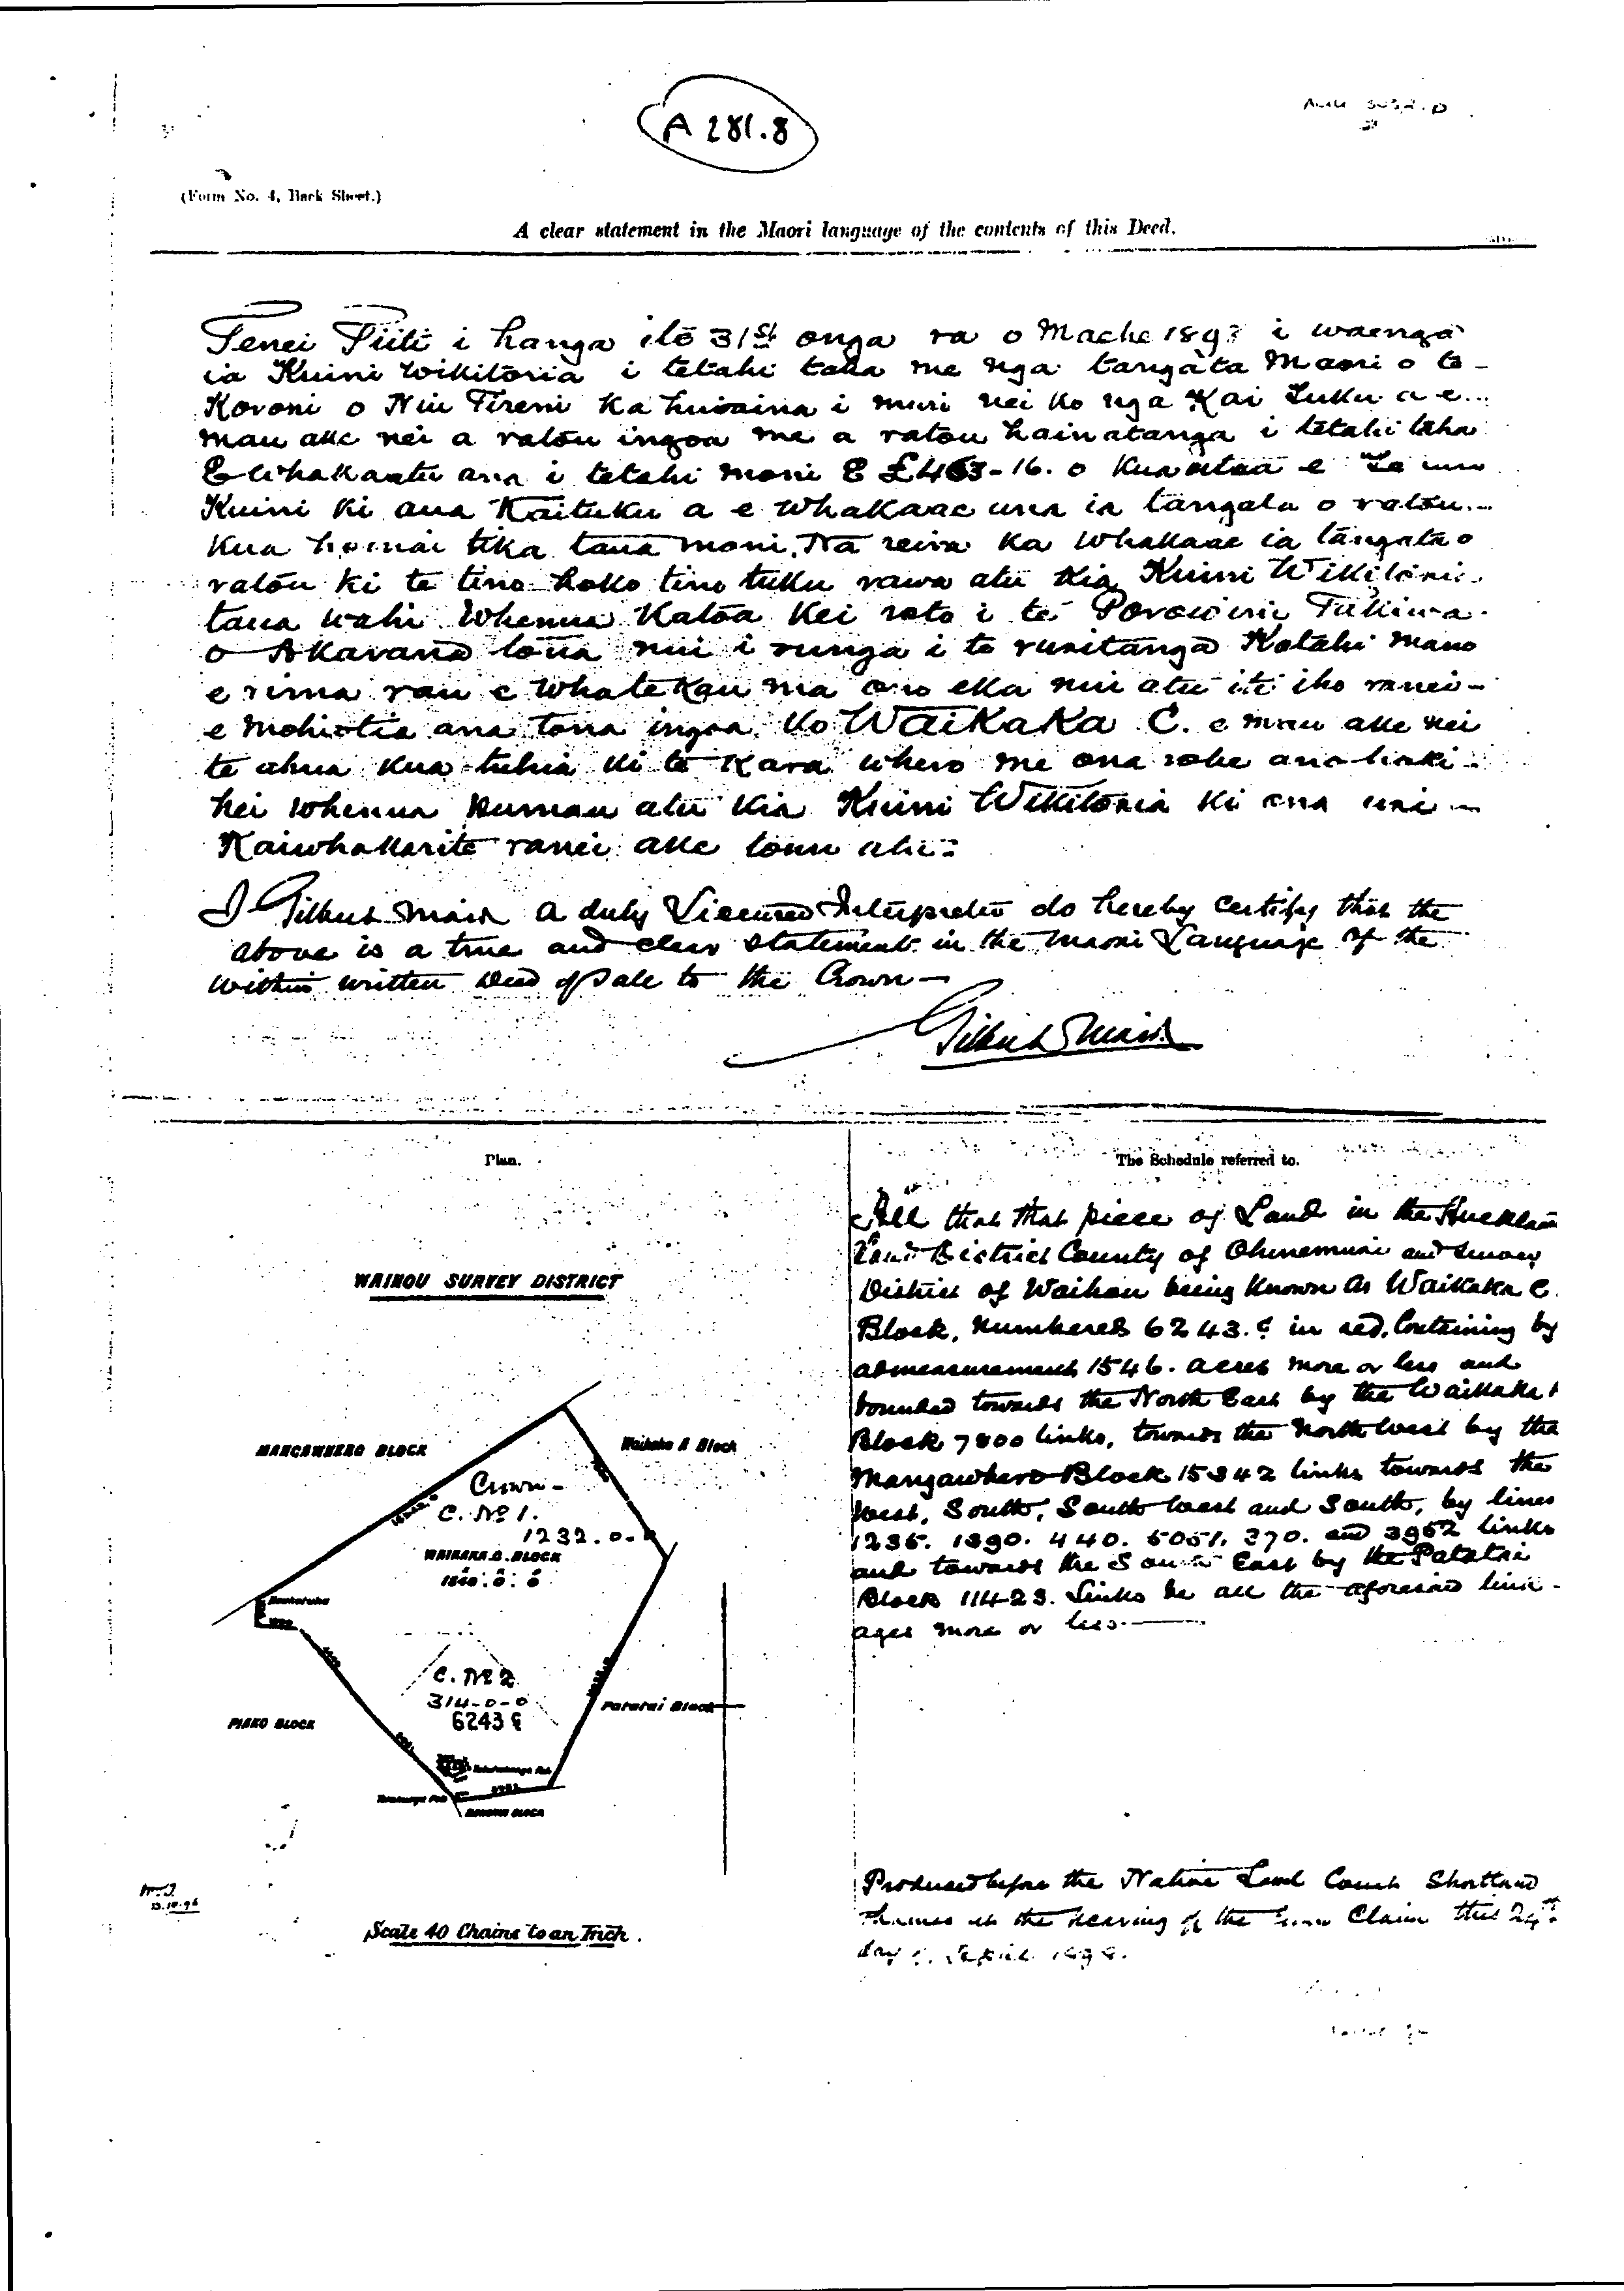 A 281.8
(Form No. 4, Back Sheet.)
A clear statement in the Maori language of the contents of this Deed.
Tenei Tiiti i hanga i te 31st o nga ra o Maehe 189 i waenga
ia Kuini Wikitoria i tetahi taha me nga tangata Maori o te
Koroni o Niu Tireni ka huaina i muri nei ko nga Kai Tuku a e
mau ake nei a ratou ingoa me a ratou hainatanga i tetahi taha
E whakaatu ana i tetahi moni E £463-16. o kua utua e
Kuini ki aua Kaituku a e whakaae ana ia tangata o ratou
kua homai tika taua moni. Na reira ka whakaae ia tangata o
ratou ki te tino hoko tino tuku rawa atu kia Kuini Wikitoria
taua wahi whenua katoa kei roto i te Porowini Takiwa
o Akarana tona nui i runga i te ruritanga Kotahi mano
e rima rau e wha tekau ma ono eka nui atu iti iho ranei
e mohiotia ana tona ingoa ko Waikaka C. e mau ake nei
te ahua kua tuhia ki te kara whero me ona rohe ano hoki
hei whenua pumau atu kia Kuini Wikitoria ki ona uri
Kaiwhakarite ranei ake tonu atu
I Gilbert Mair a duly Licensed Interpreter do hereby certify that the
above is a true and clear statement in the Maori Language of the
within written Deed of Sale to the Crown —
Gilbert Mair
Plan.
The Schedule referred to.
WAIHOU SURVEY DISTRICT
MANGAWHERO BLOCK
Waikaka A Block
Crown -
C. No 1.
1232.0-0
WAIKAKA C. BLOCK
C. No 2
314-0-0
6243 C
PIAKO BLOCK
Patatai Block
Scale 40 Chains to an Inch.
All that that piece of Land in the Auckland
Land District County of Ohinemuri and Survey
District of Waihou being known as Waikaka C.
Block, numbered 6243.C in red, Containing by
admeasurement 1546. acres more or less and
bounded towards the North East by the Waikaka A
Block 7800 links, towards the North West by the
Mangawhero Block 15342 links towards the
West, South, South West and South, by lines
1235. 1390. 440. 5051. 370. and 3952 links
and towards the South East by the Patatai
Block 11423. Links be all the aforesaid link-
ages more or less.
Produced before the Native Land Court Shortland
Thames at the hearing of the Claim this 24th
day